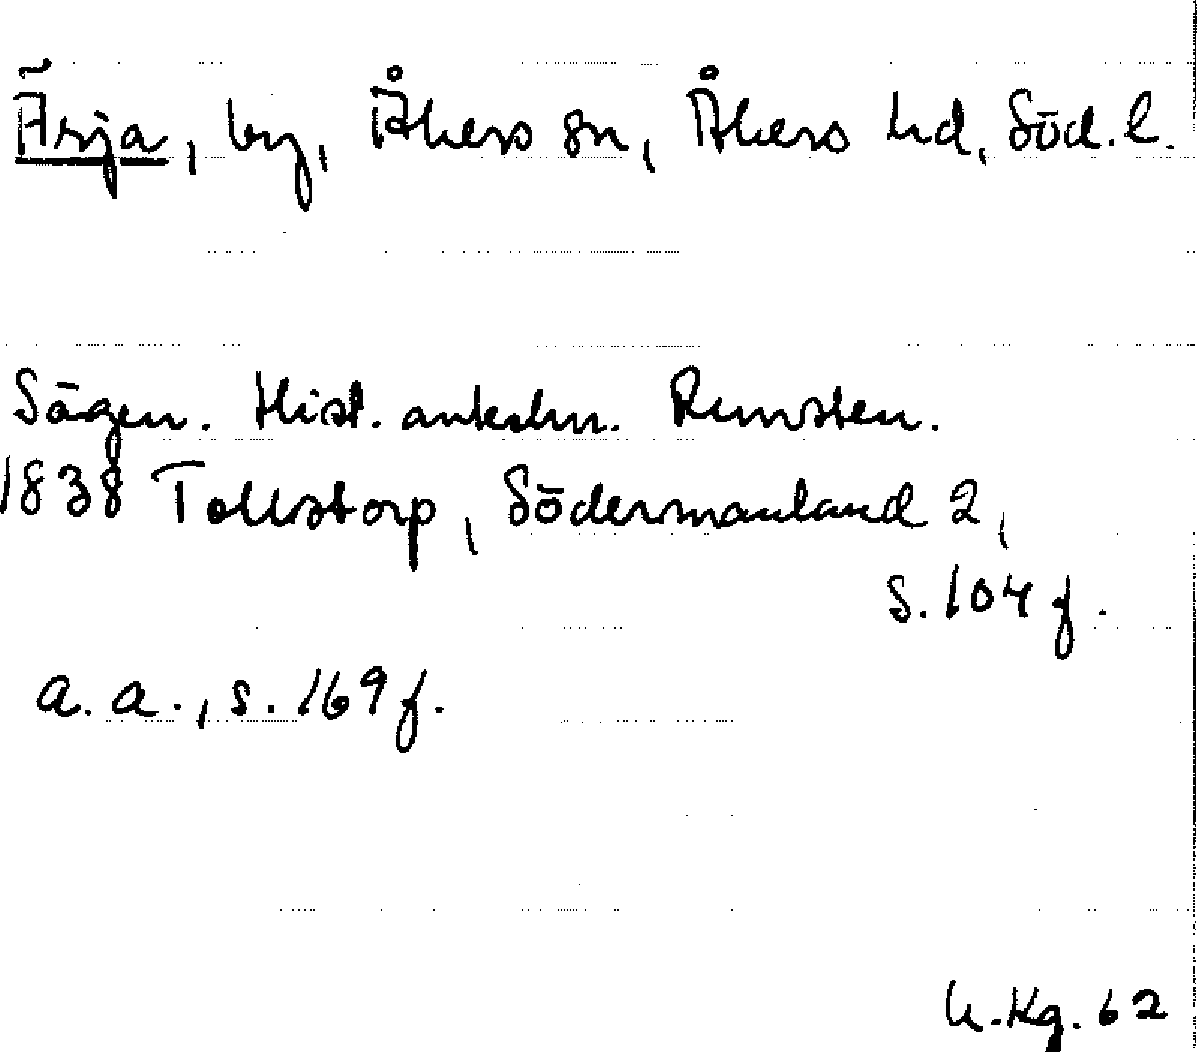 Ärja, by, Åkers sn, Åkers hd, Söd. l.
Sägen. Hist. anteckn. Runsten.
1838 Tollstorp, Södermanland 2,
s. 104 f.
a. a., s. 169 f.
U. Kg. 62